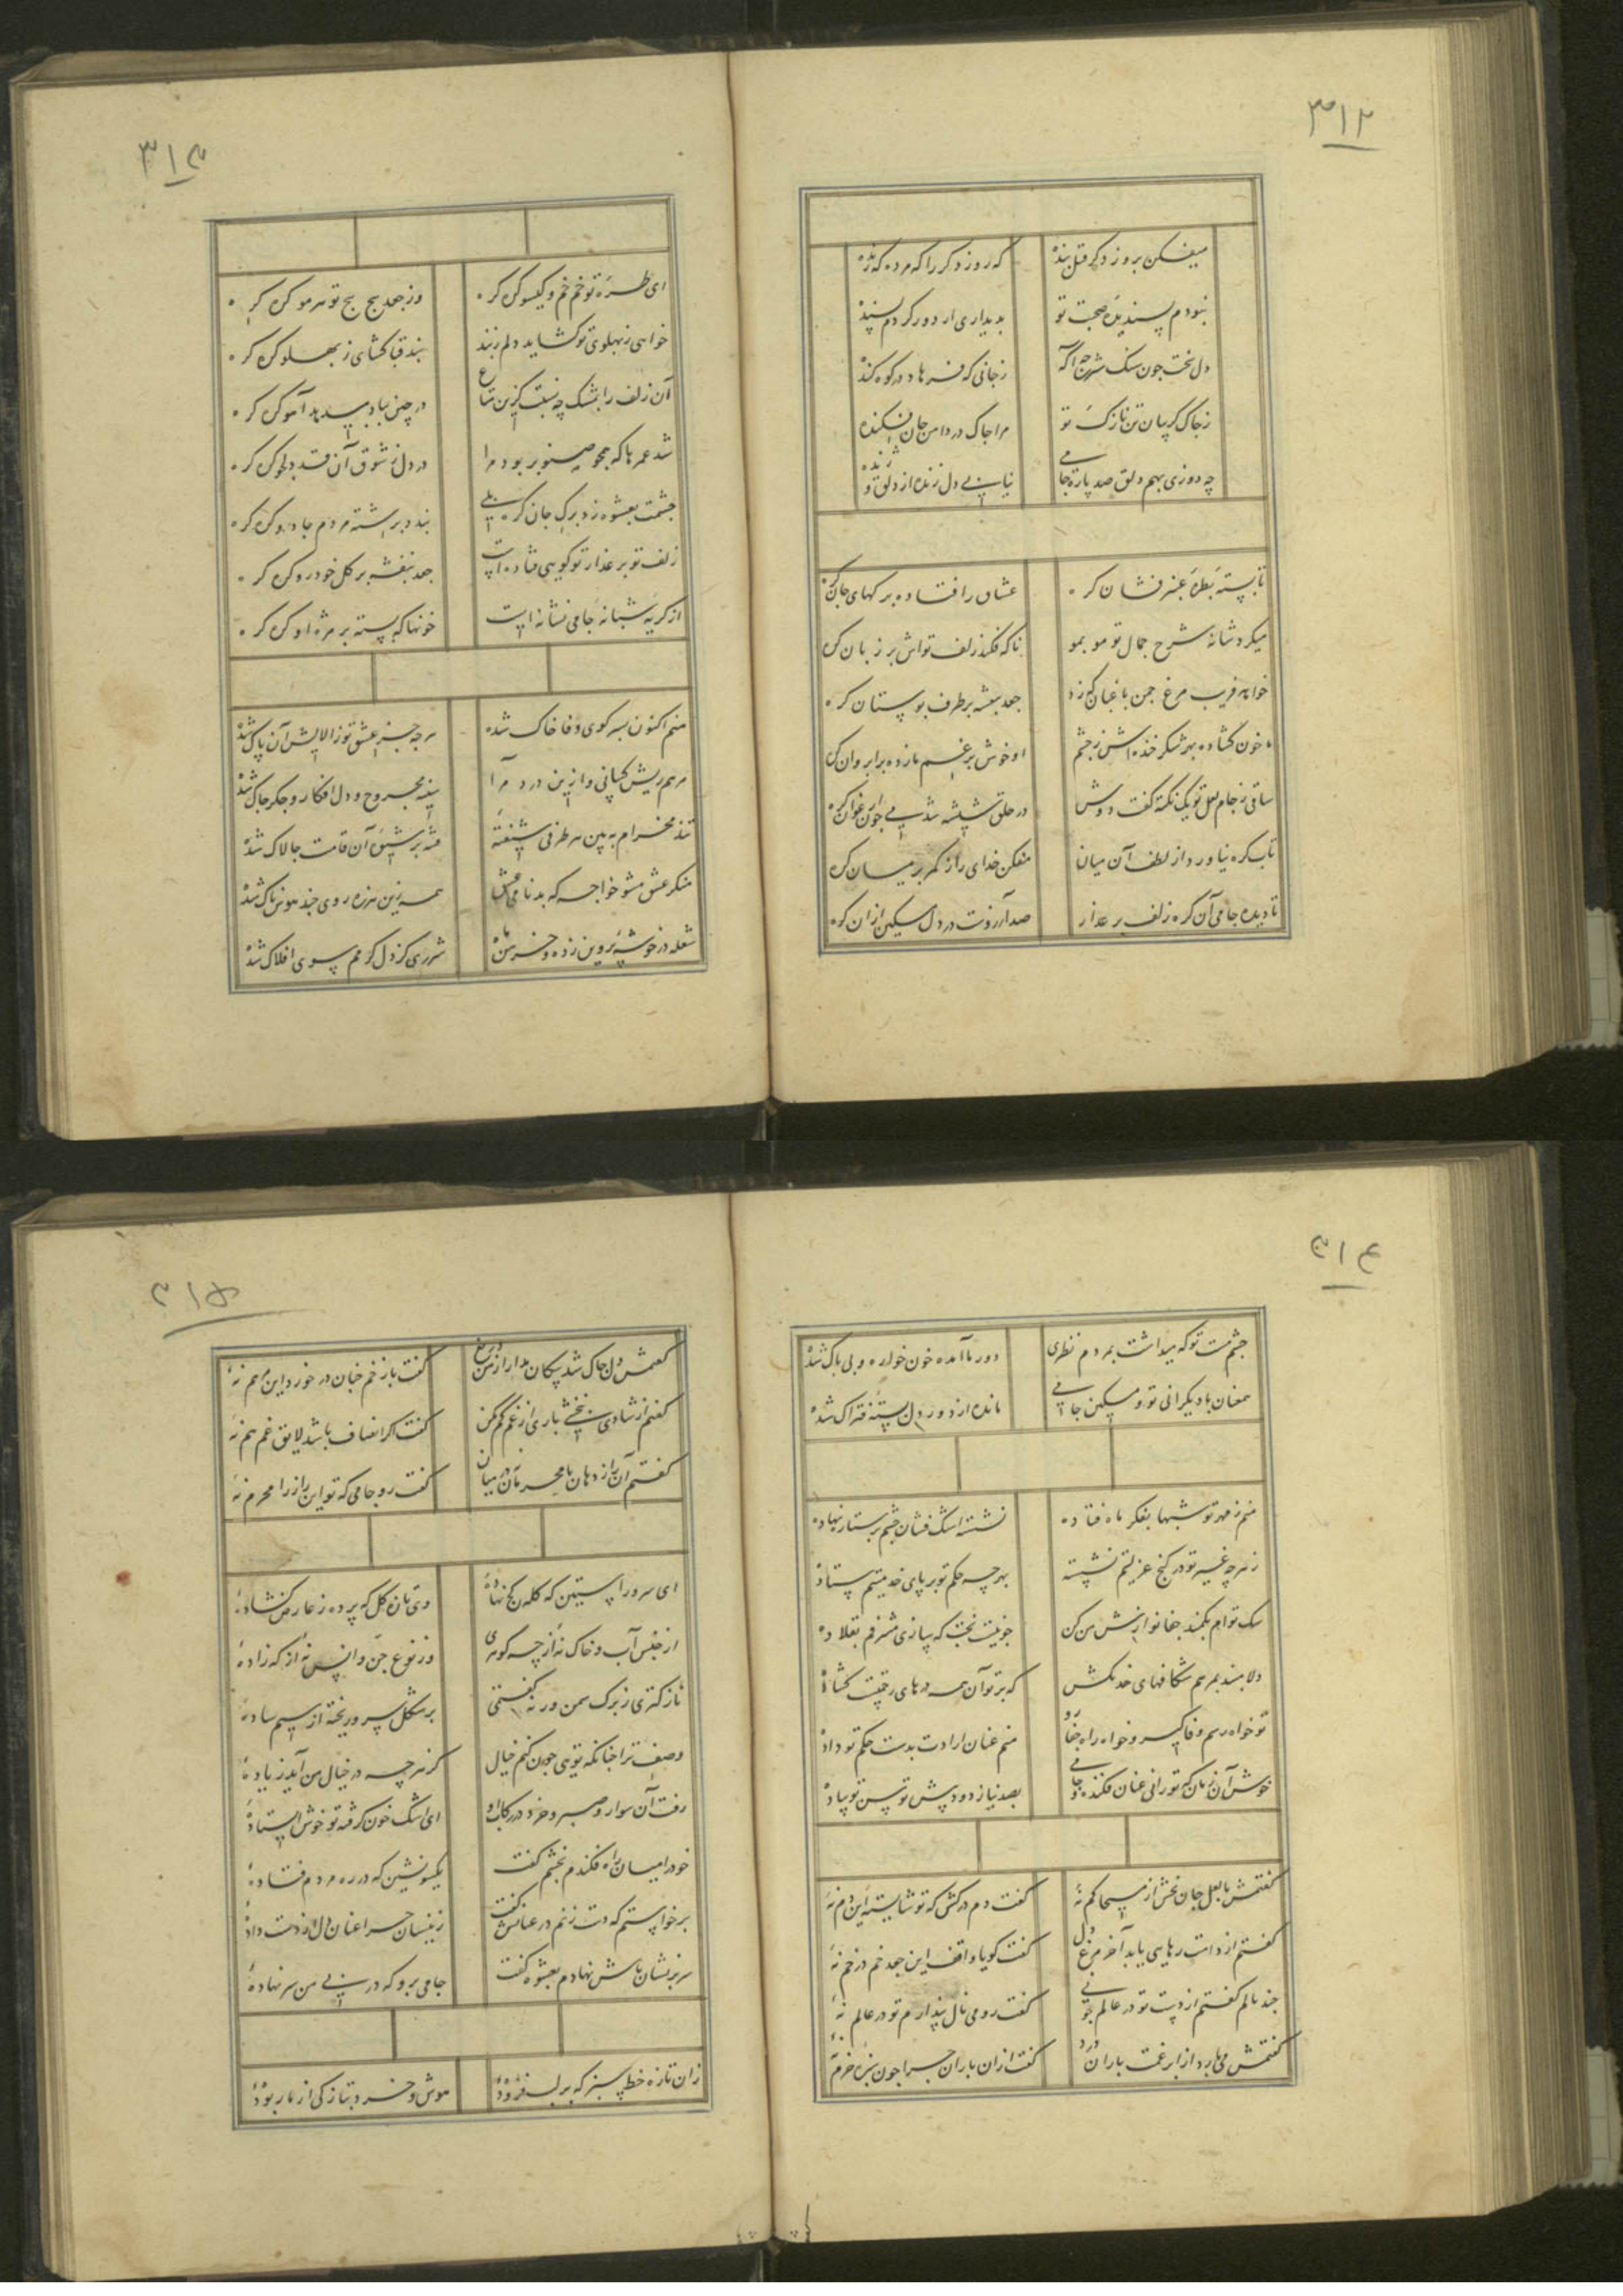 ۳۱۲
میفکن بروز دگر قتل بنده
که روز دگر را که مرده که زنده
نبودم پسندیدهٔ صحبت تو
بدیداری از دور کردم پسند
دل سخت چون سنگ
زجانی که فرهاد در کوه کنده
ز چاک گریبان تن نازک تو
مرا چاک در دامن جان فکنده
چه دوزی بهم دلق صد پاره جامی
نیاسی دل زنده از دلق و ژنده
تا بسته بطرهٔ عنبر فشان گره
عشاق را فتاده برگهای جان گره
میکرد شانه شرح جمال تو مو بمو
ناگه فکند زلف تواش بر زبان گره
خواهد فریب مرغ چمن باغبان که زد
جعد بنفشه بر طرف بوستان گره
ما خون گشاده بهر شکر خنده اش ز چشم
او خوش برغم ما زده بر ابروان گره
ساقی ز جام لعل تو یک نکته گفت دوش
در حلق شیشه شد می چون ارغوان گره
تاب گره نیاورد از لطف آن میان
مفکن خدای را ز کمر بر میان گره
تا دیده جامی آن گره زلف بر عذار
صد آرزوت در دل مسکین ازان گره
۳۱۳
ای طرهٔ تو خم خم و گیسو گره گره
وز جعد پیچ پیچ تو هر مو گره گره
خواهی ز پهلوی تو گشاید دلم ز بند
بند قبا گشای ز پهلو گره گره
آن زلف را بمشک چه نسبت کزین متاع
در چین بباد میدهد آهو گره گره
شد عمرها که همچو صنوبر بود مرا
در دل ز شوق آن قد دلجو گره گره
چشمت بعشوه زد برگ جان گره بلی
بندد برشته مردم جادو گره گره
زلف تو بر عذار تو گویی فتاده است
جعد بنفشه بر گل خودرو گره گره
از گریهٔ شبانهٔ جامی نشانه است
خونها که بسته بر مژه او گره گره
منم اکنون بسر کوی وفا خاک شده
هر چه جز عشق تو ز الایش آن پاک شده
مرهم ریش کسانی و ازین درد مرا
سینه مجروح و دل افکار و جگر چاک شده
تند مخرام به بین هر طرفی شیفتهٔ
آن قامت چالاک شده
منکر عشق مشو خواجه که بدنامی عشق
همه زین هرزه روی چند هوسناک شده
شعله در خوشهٔ پروین زده و خرمن ماه
شرری کز دل گرمم بسوی افلاک شده
۳۱۴
چشم مست تو که میداشت بمردم نظری
دور ما آمده خونخواره و بی باک شده
همعنان با دیگرانی تو و مسکین جامی
مانده از دور و دل بستهٔ فتراک شده
منم ز مهر تو شبها بفکر ماه فتاده
نشسته اشک فشان چشم بر ستاره نهاده
ز هر چه غیر تو در کنج عزلتم نشسته
بهر چه حکم تو بر پای خدمتم ستاده
سگ تو ام بکمند جفا نوازش من کن
چو نیست بخت که سازی مشرفم بقلاده
دلا مبند بمرهم شکافهای خدنگش
که بر تو آن همه درهای رحمتست گشاده
تو خواه رسم وفا گیر و خواه راه جفا رو
منم عنان ارادت بدست حکم تو داده
خوش آن زمان که تو رانی عنان فکنده و جامی
بصد نیاز دود پیش توسن تو پیاده
گفتمش با لعل جان بخش از مسیحا کم نهٔ
گفت دم درکش که تو شایستهٔ این دم نهٔ
گفتم از دامت رهایی یابد آخر مرغ دل
گفت گویا واقف این جعد خم در خم نهٔ
چند نالم گفتم از دست تو در عالم بجوی
گفت رو می نال پندارم تو در عالم نهٔ
گفتمش می بارد از ابر غمت باران درد
گفت ازان باران چرا چون سبزه خرم نهٔ
۳۱۵
گفتمش دل چاک شد پیکان مدار از من دریغ
گفت با زخم چنان در خورد این مرهم نهٔ
گفتم از شادی نبخشی باری از غم کم مکن
گفت اگر انصاف باشد لایق غم هم نهٔ
گفتم آن راز دهان با محرمان در میان
گفت رو جامی که تو این راز را محرم نهٔ
ای سرو راستین که کله کج نهادهٔ
وی تازه گل که پرده ز عارض گشادهٔ
از جنس آب و خاک نهٔ از چه گوهری
وز نوع جن و انس نهٔ از که زادهٔ
نازکتری ز برگ سمن ور نه گفتمی
بر شکل سرو ریخته از سیم سادهٔ
وصف ترا چنانکه تویی چون کنم خیال
کز هر چه در خیال من آید زیادهٔ
رفت آن سوار و صبر و خرد در رکاب او
ای اشک خون گرفته تو خوش ایستادهٔ
خود را میان راه فکندم بخشم گفت
یکسو نشین که در ره مردم فتادهٔ
برخواستم که دست زنم در عنانش گفت
زینسان چرا عنان دل از دست دادهٔ
سر بر نشان پاش نهادم بعشوه گفت
جامی برو که در پی من سر نهادهٔ
زان تازه خط سبز که بر لب فزودهٔ
هوش و خرد بتازگی از ما ربودهٔ